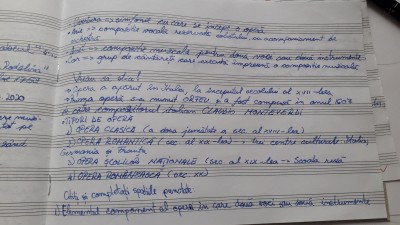 Uvertura → cu care se începe o operă
Arie → compoziție vocală rezervată solistului cu acompaniament de
orchestră
Duet → compoziție muzicală pentru două voci sau două instrumente
Cor → grup de cântăreți care execută împreună o compoziție muzicală
Vreau să știu!
- Opera a apărut în Italia, la începutul secolului al XVII-lea
- Prima operă s-a numit ORFEU și a fost compusă în anul 1607
de către compozitorul italian CLAUDIO MONTEVERDI
TIPURI DE OPERĂ
1) OPERA CLASICĂ (a doua jumătate a sec. al XVIII-lea)
2) OPERA ROMANTICĂ (sec. al XIX-lea) → trei centre culturale: Italia,
Germania și Franța
3) OPERA ȘCOLILOR NAȚIONALE (sec. al XIX-lea → Școala rusă
4) OPERA ROMÂNEASCĂ (sec. XX)
Citiți și completați spațiile punctate:
1) Elementul component al operei în care două voci sau două instrumente
1752
2020